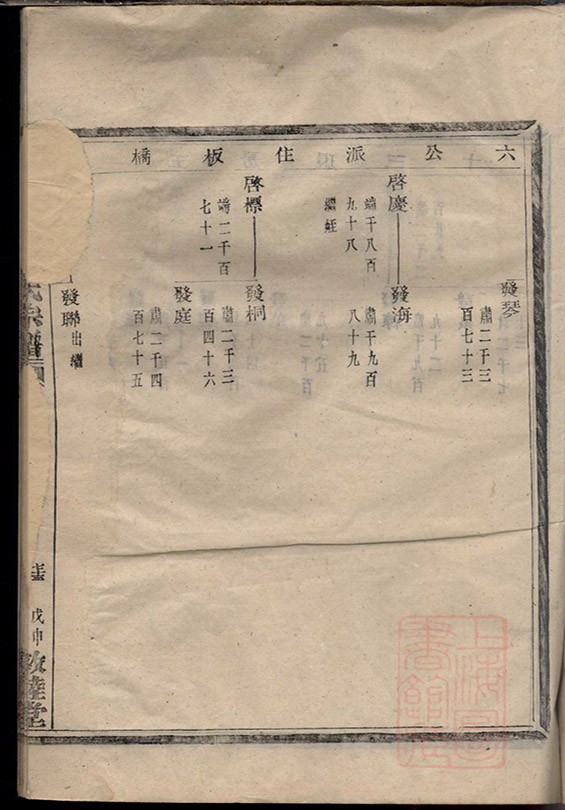 六公派住板橋
發琴
肅二千三
百七十三
啓慶
端千八百
九十八
繼姪
發海
肅千九百
八十九
啓標
端二千百
七十一
發桐
肅二千三
百四十六
發庭
肅二千四
百七十五
發聯出繼
戊申
敦睦堂
上海圖書館藏